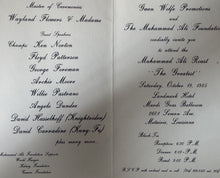 Master of Ceremonies
Wayland Flowers & Madame
Guest Speakers
Champs Ken Norton
Floyd Patterson
George Foreman
Archie Moore
Willie Pastrano
Angelo Dundee
David Hasselhoff (Knightrider)
David Carradine (Kung-Fu)
plus many more...
Muhammad Ali Foundation Supports
World Hunger
Sickle Cell Foundation
Green Wolfe Promotions
and
The Muhammad Ali Foundation
cordially invite you
to attend the
Muhammad Ali Roast
"The Greatest"
Saturday, October 19, 1985
Landmark Hotel
Mardi Gras Ballroom
2601 Severn Ave.
Metairie, Louisiana
Black Tie
Reception 6 P.M.
Dinner 7 P.M.
Roast 8 P.M.